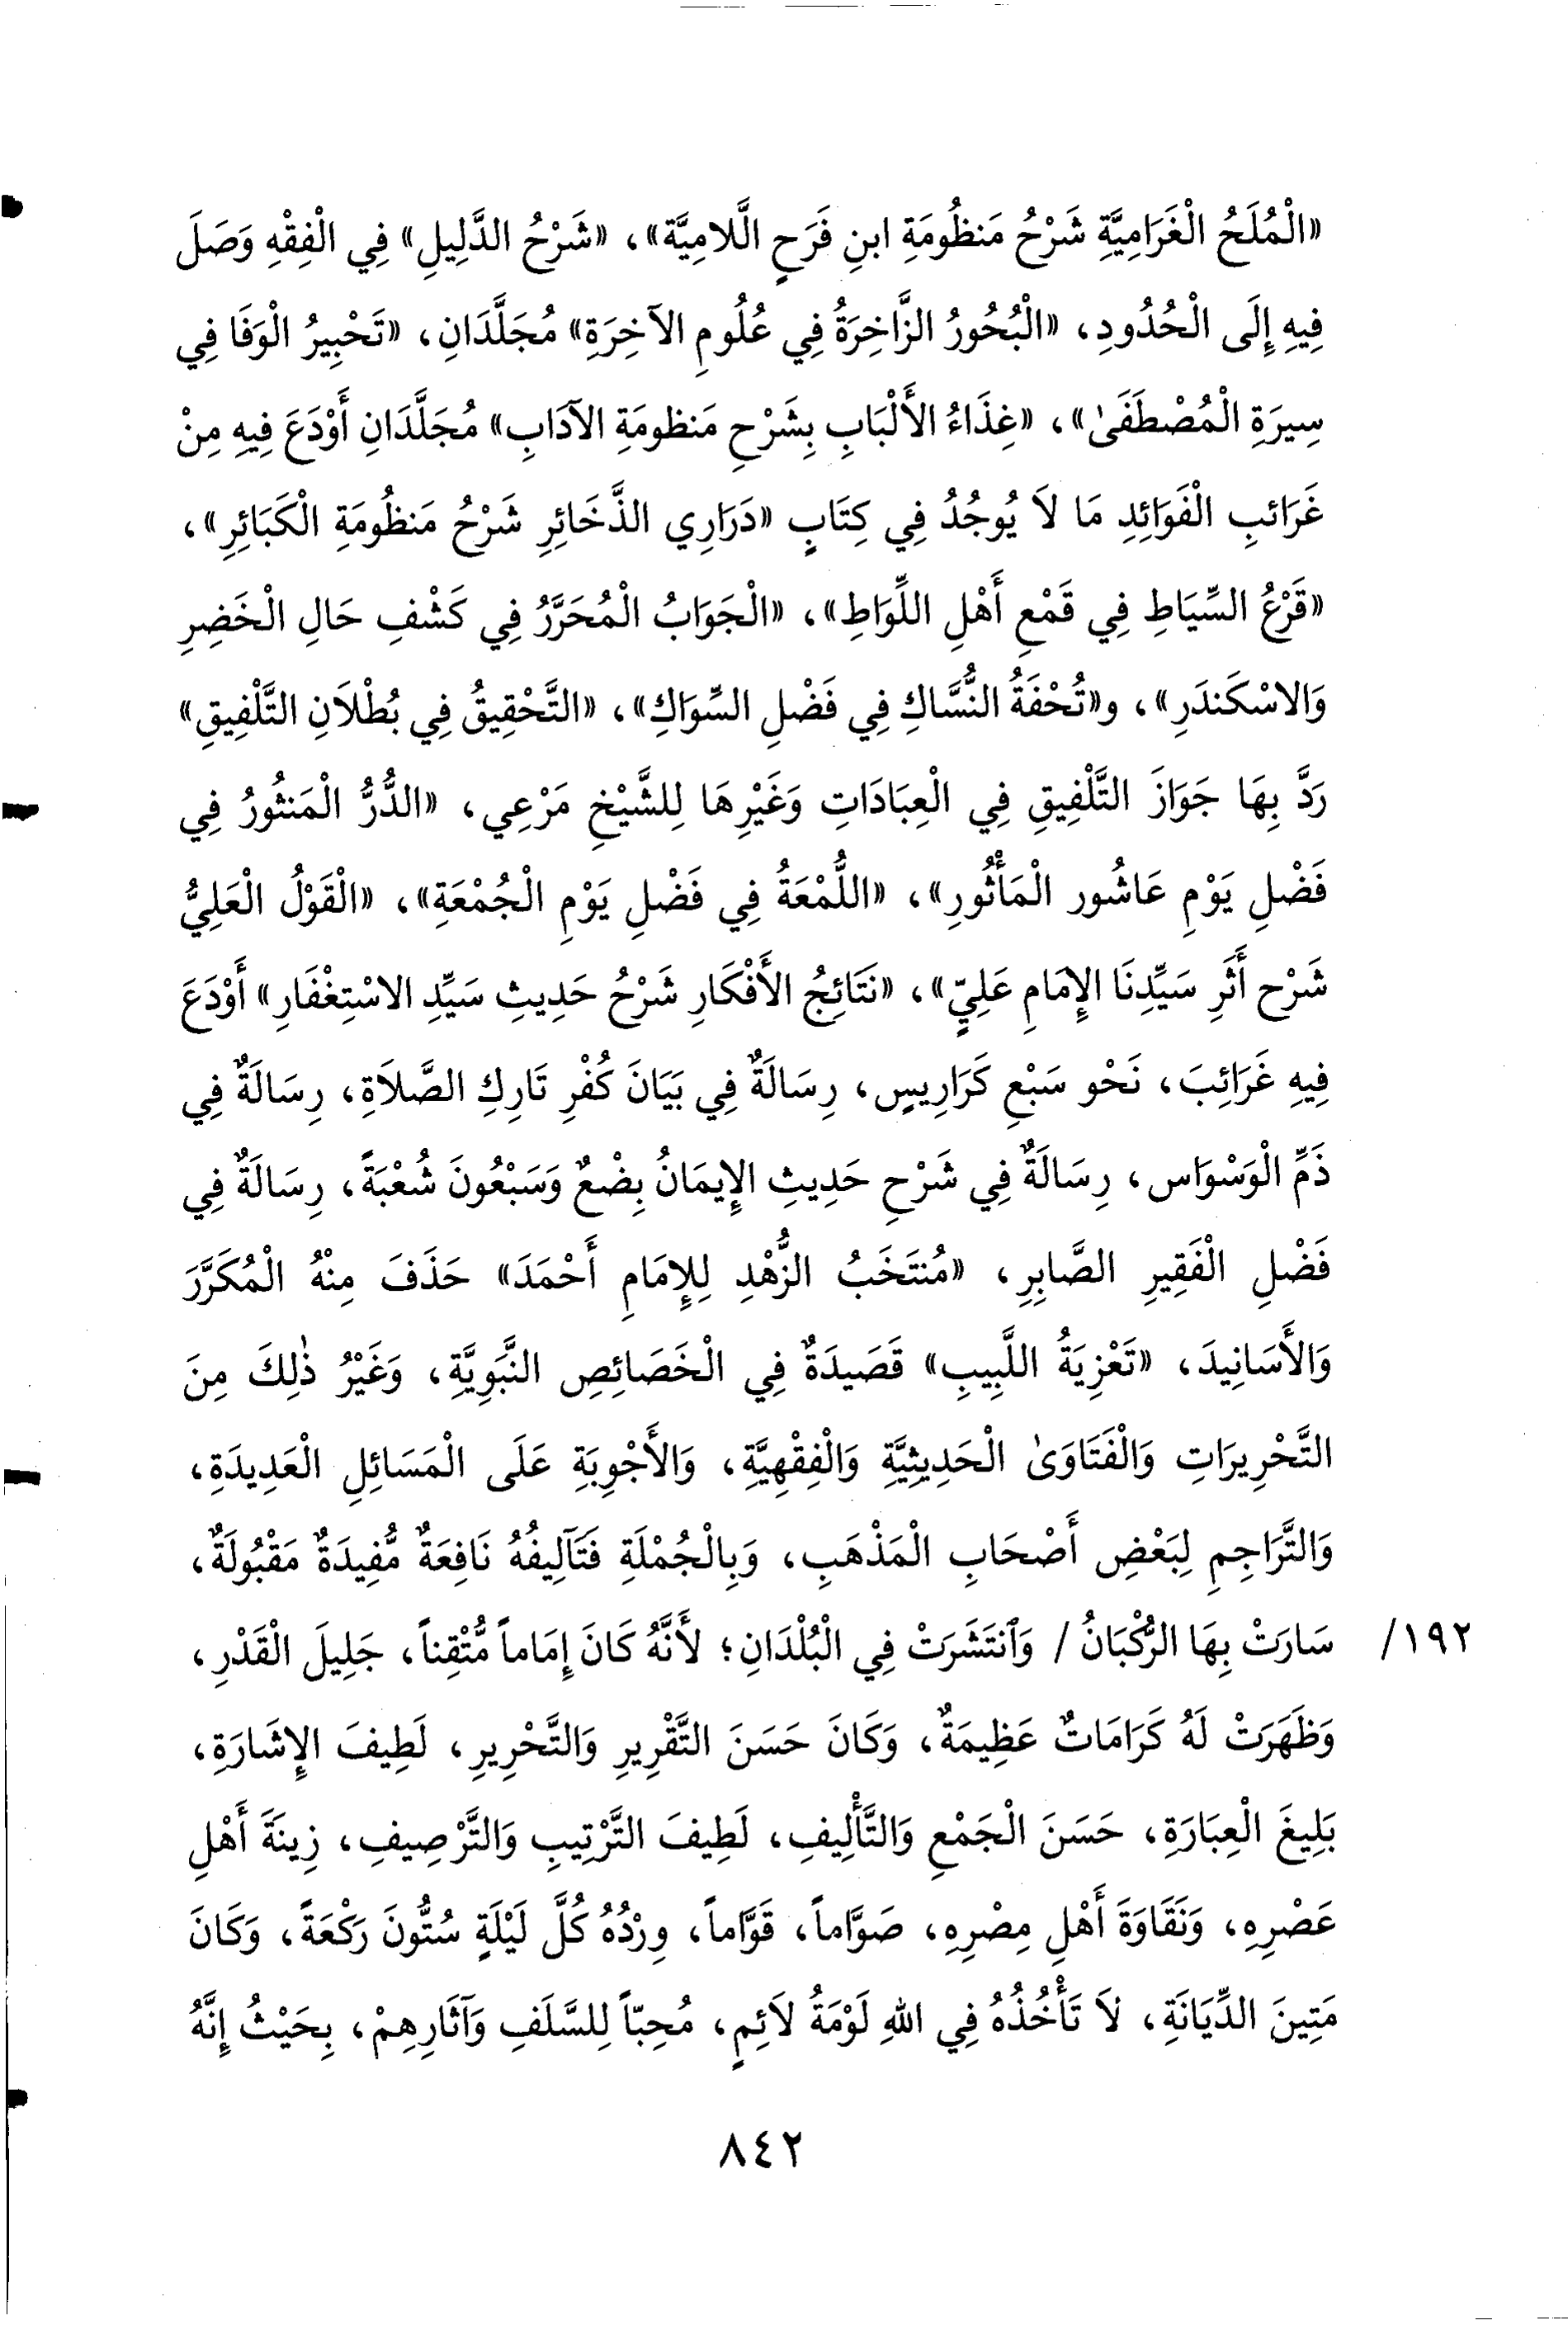 «الْمُلَحُ الْغَرَامِيَّةِ شَرْحُ مَنظُومَةِ ابنِ فَرَحٍ الَّلامِيَّة»، «شَرْحُ الدَّلِيلِ» فِي الْفِقْهِ وَصَلَ
فِيهِ إِلَى الْحُدُودِ، «الْبُحُورُ الزَّاخِرَةُ فِي عُلُومِ الآخِرَةِ» مُجَلَّدَانِ، «تَحْبِيرُ الْوَفَا فِي
سِيرَةِ الْمُصْطَفَىٰ»، «غِذَاءُ الأَلْبَابِ بِشَرْحِ مَنظومَةِ الآدَابِ» مُجَلَّدَانِ أَوْدَعَ فِيهِ مِنْ
غَرَائبِ الْفَوَائِدِ مَا لاَ يُوجُدُ فِي كِتَابٍ «دَرَارِي الذَّخَائِرِ شَرْحُ مَنظُومَةِ الْكَبَائِرِ»،
«قَرْعُ السِّيَاطِ فِي قَمْعِ أَهْلِ اللِّوَاطِ»، «الْجَوَابُ الْمُحَرَّرُ فِي كَشْفِ حَالِ الْخَضِرِ
وَالاسْكَندَرِ»، و«تُحْفَةُ النُّسَّاكِ فِي فَضْلِ السِّوَاكِ»، «التَّحْقِيقُ فِي بُطْلَانِ التَّلْفِيقِ»
رَدَّ بِهَا جَوَازَ التَّلْفِيقِ فِي الْعِبَادَاتِ وَغَيْرِهَا لِلشَّيْخِ مَرْعِي، «الدُّرُّ الْمَنثُورُ فِي
فَضْلِ يَوْمِ عَاشُور الْمَأْثُورِ»، «اللُّمْعَةُ فِي فَضْلِ يَوْمِ الْجُمْعَةِ»، «الْقَوْلُ الْعَلِيُّ
شَرْح أَثَرِ سَيِّدِنَا الإِمَامِ عَلِيٍّ»، «نَتَائِجُ الأَفْكَارِ شَرْحُ حَدِيثِ سَيِّدِ الاسْتِغْفَارِ» أَوْدَعَ
فِيهِ غَرَائِبَ، نَحْو سَبْعِ كَرَارِيسٍ، رِسَالَةٌ فِي بَيَانَ كُفْرِ تَارِكِ الصَّلاَةِ، رِسَالَةٌ فِي
ذَمِّ الْوَسْوَاس، رِسَالَةٌ فِي شَرْحِ حَدِيثِ الإِيمَانُ بِضْعٌ وَسَبْعُونَ شُعْبَةً، رِسَالَةٌ فِي
فَضْلِ الْفَقِيرِ الصَّابِرِ، «مُنتَخَبُ الزُّهْدِ لِلإِمَامِ أَحْمَدَ» حَذَفَ مِنْهُ الْمُكَرَّرَ
وَالأَسَانِيدَ، «تَعْزِيَةُ اللَّبِيبِ» قَصَيدَةٌ فِي الْخَصَائِصِ النَّبَوِيَّةِ، وَغَيْرُ ذٰلِكَ مِنَ
التَّحْرِيرَاتِ وَالْفَتَاوَىٰ الْحَدِيثِيَّةِ وَالْفِقْهِيَّةِ، وَالأَجْوِبَةِ عَلَى الْمَسَائِلِ الْعَدِيدَةِ،
وَالتَّرَاجِمِ لِبَعْضِ أَصْحَابِ الْمَذْهَبِ، وَبِالْجُمْلَةِ فَتَآلِيفُهُ نَافِعَةٌ مُّفِيدَةٌ مَقْبُولَةٌ،
سَارَتْ بِهَا الرُّكْبَانُ / وَٱنتَشَرَتْ فِي الْبُلْدَانِ؛ لأَنَّهُ كَانَ إِمَاماً مُّتْقِناً، جَلِيلَ الْقَدْرِ، ١٩٢/
وَظَهَرَتْ لَهُ كَرَامَاتٌ عَظِيمَةٌ، وَكَانَ حَسَنَ التَّقْرِيرِ وَالتَّحْرِيرِ، لَطِيفَ الإِشَارَةِ،
بَلِيغَ الْعِبَارَةِ، حَسَنَ الْجَمْعِ وَالتَّأْلِيفِ، لَطِيفَ التَّرْتِيبِ وَالتَّرْصِيفِ، زِينَةَ أَهْلِ
عَصْرِهِ، وَنَقَاوَةَ أَهْلِ مِصْرِهِ، صَوَّاماً، قَوَّاماً، وِرْدُهُ كُلَّ لَيْلَةٍ سُتُّونَ رَكْعَةً، وَكَانَ
مَتِينَ الدِّيَانَةِ، لاَ تَأْخُذُهُ فِي اللهِ لَوْمَةُ لاَئِمٍ، مُحِبّاً لِلسَّلَفِ وَآثَارِهِمْ، بِحَيْثُ إِنَّهُ
٨٤٢